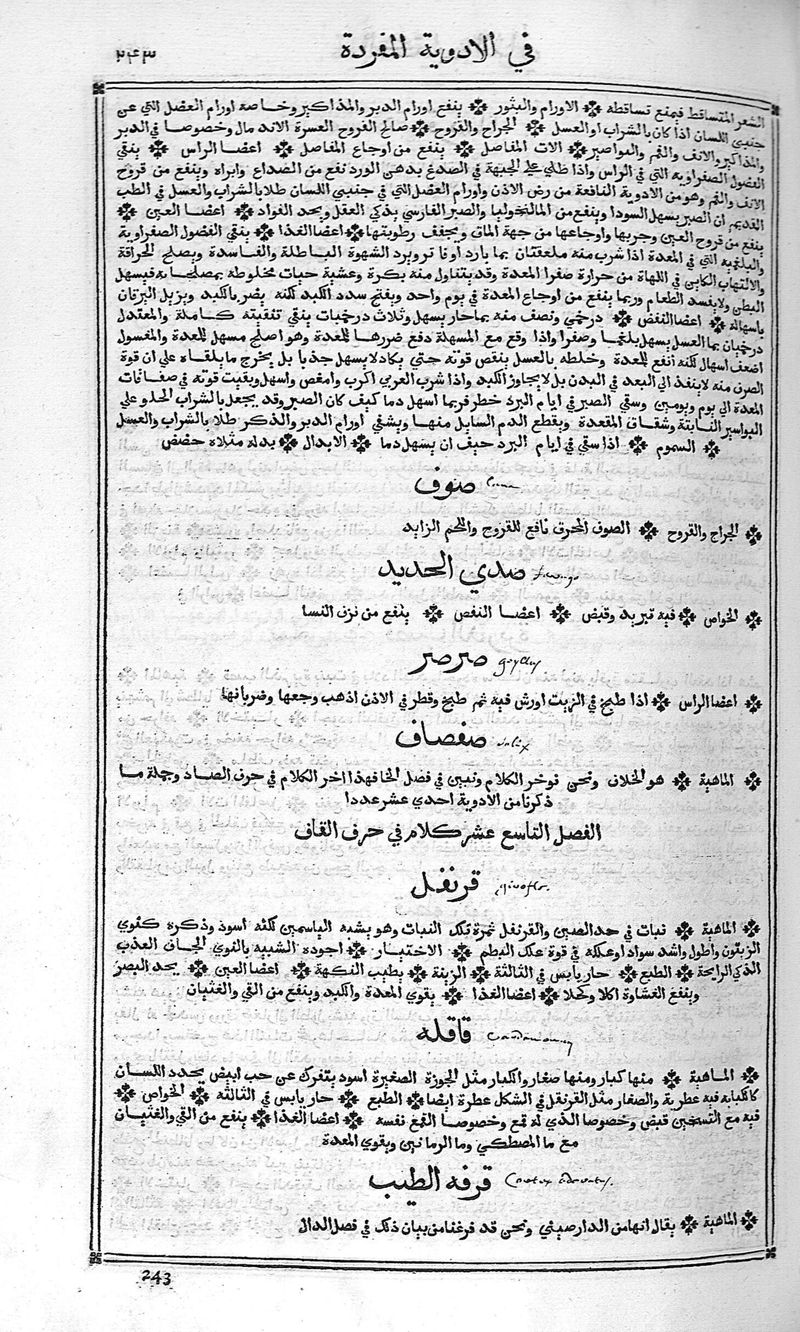 في الادوية المفردة ٢٤٣
الشعر المتساقط فيمنع تساقطه ✤ الاورام والبثور ✤ ينفع اورام الدبر والمذاكير وخاصه اورام العضل التي عن
جنبي اللسان اذا كان بالشراب او العسل ✤ الجراح والقروح ✤ صالح للقروح العسرة الاندمال وخصوصا في الدبر
والمذاكير والانف والفم والنواصير ✤ الات المفاصل ✤ ينفع من اوجاع المفاصل ✤ اعضا الراس ✤ ينقي
الفضول الصفراويه التي في الراس واذا طلي علي الجبهة في الصدغ بدهن الورد نفع من الصداع وابراه وينفع من قروح
الانف والفم وهو من الادوية النافعة من رض الاذن واورام العضل التي في جنبتي اللسان طلا بالشراب والعسل في الطب
القديم ان الصبر يسهل السودا وينفع من المالنخوليا والصبر الفارسي يذكي العقل ويحد الفواد ✤ اعضا العين ✤
ينفع من قروح العين وجربها واوجاعها من جهة الماق ويجفف رطوبتها ✤ اعضا الغذا ✤ ينقي الفضول الصفراوية
والبلغميه التي في المعدة اذا شرب منه ملعقتان بما بارد او فاتر ويرد الشهوة الباطلة والفاسدة ويصلح الحراقة
والالتهاب الكاين في اللهاة من حرارة صفرا المعدة وقد يتناول منه بكرة وعشية حبات مخلوطه بمصلحاته فيسهل
البطن ولا يفسد الطعام وربما ينفع من اوجاع المعدة في يوم واحد ويفتح سدد الكبد لكنه يضر بالكبد ويزيل اليرقان
باسهاله ✤ اعضا النفض ✤ درخمي ونصف منه بما حار يسهل وثلاث درخميات ينقي تنقيته كاملة والمعتدل
درخميان بما العسل يسهل بلغما وصفرا واذا وقع مع المسهلة دفع ضررها للمعدة وهو اصلح مسهل للمعدة والمغسول
اضعف اسهال لكنه انفع للمعدة وخلطه بالعسل ينقص قوته حتي يكاد لا يسهل جذبا بل يخرج ما يلقاه علي ان قوة
الصرف منه لا ينفذ الي البعد في البدن بل لا يجاوز الكبد واذا شرب العربي اكرب وامغص واسهل وبقيت قوته في صفاقات
المعدة الي يوم ويومين وسقي الصبر في ايام البرد خطر فربما اسهل دما كيف كان الصبر وقد يجعل بالشراب الحلو علي
البواسير النابتة وشقاق المقعدة ويقطع الدم السايل منها ويشفي اورام الدبر والذكر طلا بالشراب والعسل
✤ السموم ✤ اذا سقي في ايام البرد خيف ان يسهل دما ✤ الابدال ✤ بدله مثلاه حضض
صوف
✤ الجراح والقروح ✤ الصوف المحرق نافع للقروح واللحم الزايد
صدي الحديد
✤ الخواص ✤ فيه تبريد وقبض ✤ اعضا النفض ✤ ينفع من نزف النسا
صرصر gryllus
✤ اعضا الراس ✤ اذا طبخ في الزيت اورش فيه ثم طبخ وقطر في الاذن اذهب وجعها وضربانها
صفصاف salix
✤ الماهية ✤ هو الخلاف ونحن نوخر الكلام ونبين في فصل الخا فهذا اخر الكلام في حرف الصاد وجملة ما
ذكرنا من الادوية احدي عشر عددا
الفصل التاسع عشر كلام في حرف القاف
قرنفل
✤ الماهية ✤ نبات في حد الصين والقرنفل ثمرة تلك النبات وهو يشبه الياسمين لكنه اسود وذكره كنوي
الزيتون واطول واشد سوادا وعلكه في قوة علك البطم ✤ الاختيار ✤ اجوده الشبيه بالنوي الجاف العذب
الذكي الرايحة ✤ الطبع ✤ حار يابس في الثالثة ✤ الزينة ✤ يطيب النكهة ✤ اعضا العين ✤ يحد البصر
وينفع الغشاوة اكلا وكحلا ✤ اعضا الغذا ✤ يقوي المعدة والكبد وينفع من القي والغثيان
قاقله
✤ الماهية ✤ منها كبار ومنها صغار والكبار مثل الجوزة الصغيرة اسود يتفرك عن حب ابيض يحدد اللسان
كالكبابه فيه عطرية والصغار مثل القرنفل في الشكل عطرة ايضا ✤ الطبع ✤ حار يابس في الثالثه ✤ الخواص ✤
فيه مع التسخين قبض وخصوصا الذي له قمع وخصوصا القمع نفسه ✤ اعضا الغذا ✤ ينفع من القي والغثيان
مع ما المصطكي وما الرمانين ويقوي المعدة
قرفه الطيب Cortex
✤ الماهية ✤ يقال انها من الدارصيني ونحن قد فرغنا من بيان ذلك في فصل الدال
243